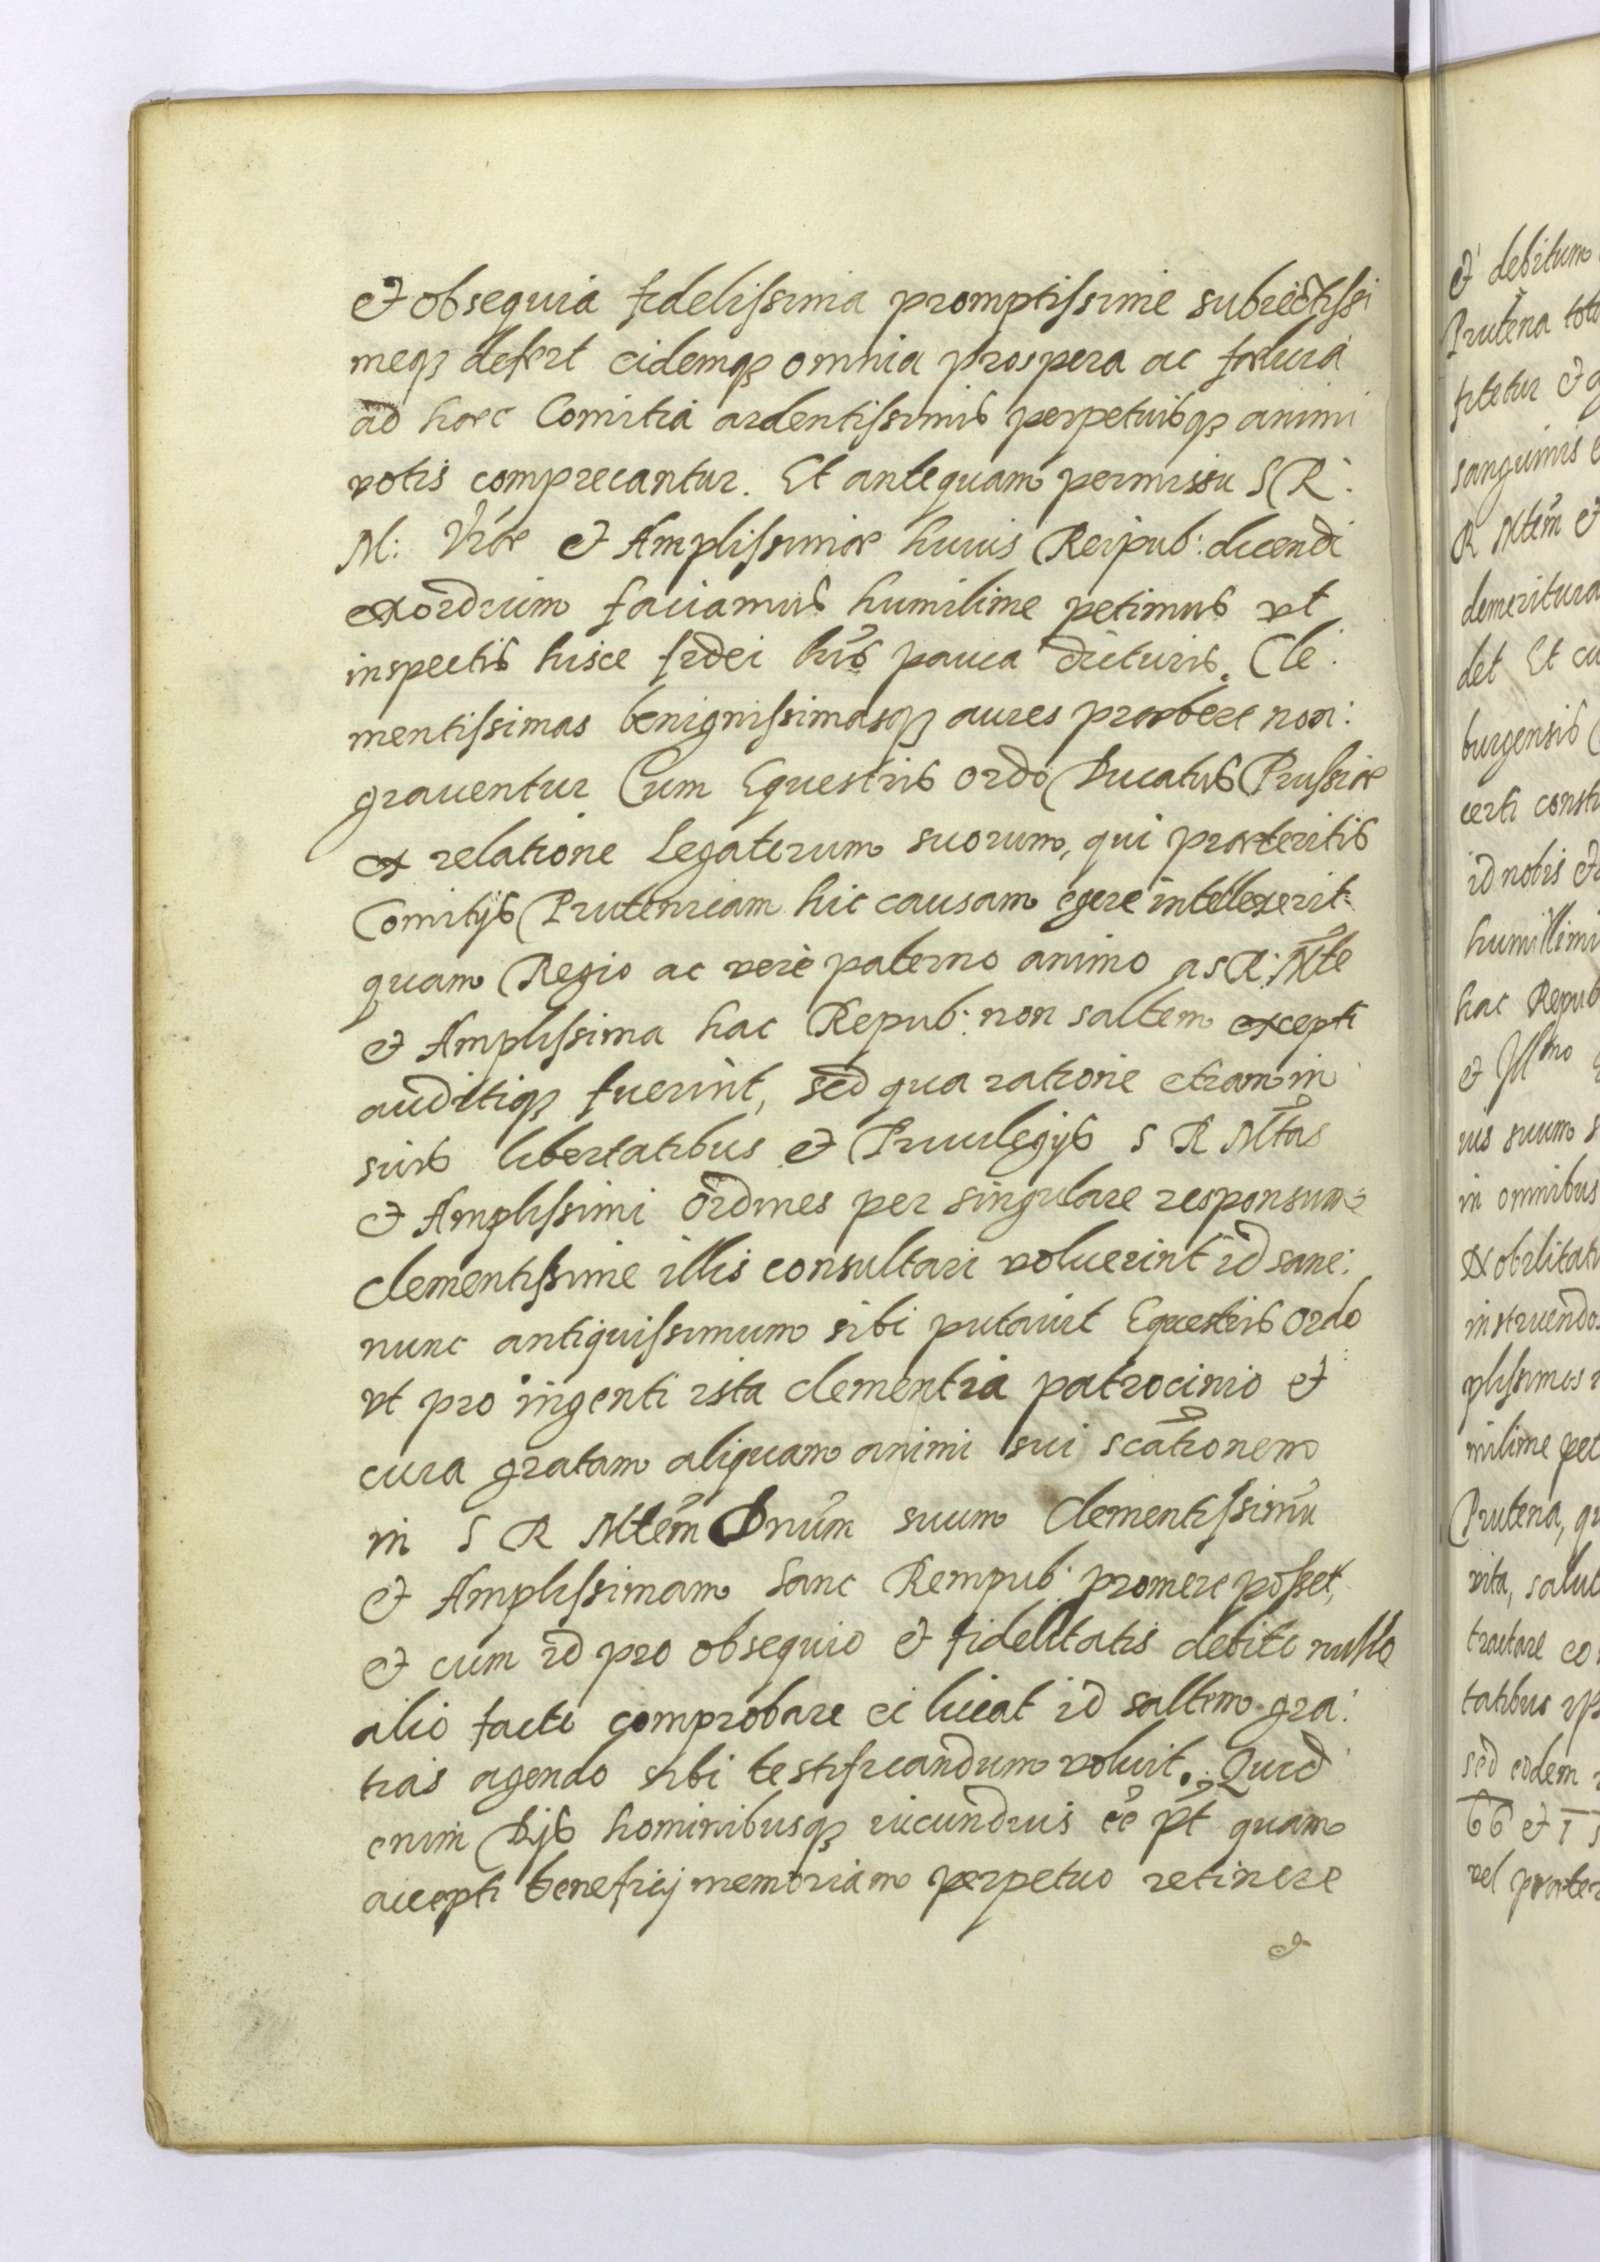 et obsequia fidelissima promptissime subiectissi
meqꝫ defert eidemqꝫ omnia prospera ac
ad haec Comitia ardentissimis perpetuisqꝫ animi
votis comprecantur. Et antequam permissu S R:
M: Vrae et Amplissimae huius Reipub: dicendi
exordium faciamus humilime petimus vt
inspectis hisce fidei pauca dicturis. Cle:
mentissimas benignissimasqꝫ aures praebere non:
grauentur Cum Equestris ordo Ducatus Prussiae
ex relatione Legatorum suorum, qui praeteritis
Comitijs Prutenicam hic causam egere intellexerit:
quam Regio ac verè paterno animo a S R: Mte
et Amplissima hac Repub: non saltem excepti
auditiqꝫ fuerint, sed qua ratione etiam in
suis libertatibus et Priuilegijs S R Mtas
et Amplissimi ordines per singulare responsum
clementissime illis consultari voluerint id sane:
nunc antiquissimum sibi putauit Equestris ordo
vt pro ingenti ista clementia patrocinio et
cura gratam aliquam animi sui
in S R Mtem Dnum suum Clementissimu
et Amplissimam hanc Rempub: promere posset,
et cum id pro obsequio et fidelitatis debito nullo
alio facto comprobare ei liceat id saltem gra:
tias agendo sibi testificandum voluit. Quid
enim Dijs hominibusqꝫ iucundius ee pt quam
accepti beneficij memoriam perpetuo retinere
et
et debitum
Prutena
fitetur et
sanguinis
R Mtem et
demeritura
det Et
burgensis
certi
id nobis
humillimi
hac Repub
et Illmo
suum
in omnibus
Nobilitati
instruendos
plissimos
milime
Prutena,
vita,
tractare
tatibus
sed eodem
66 et
vel